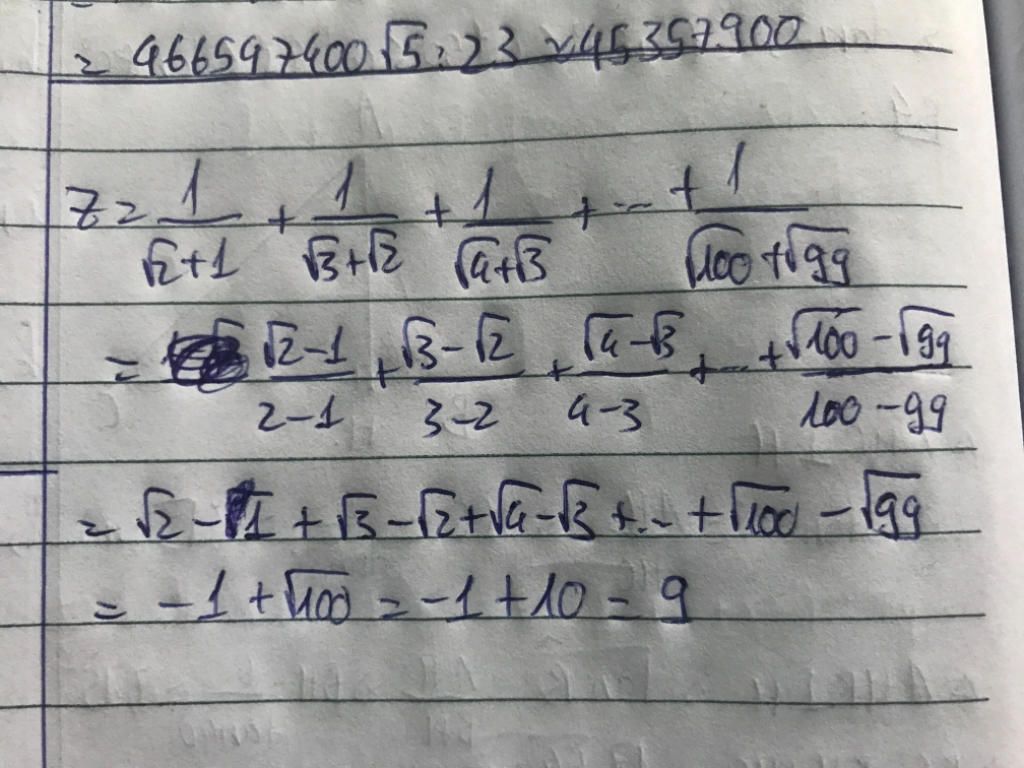 = 466597400√5 : 23 ≈ 45357900
Z = 1/(√2+1) + 1/(√3+√2) + 1/(√4+√3) + ... + 1/(√100+√99)
= (√2-1)/(2-1) + (√3-√2)/(3-2) + (√4-√3)/(4-3) + ... + (√100-√99)/(100-99)
= √2 - 1 + √3 - √2 + √4 - √3 + ... + √100 - √99
= -1 + √100 = -1 + 10 = 9